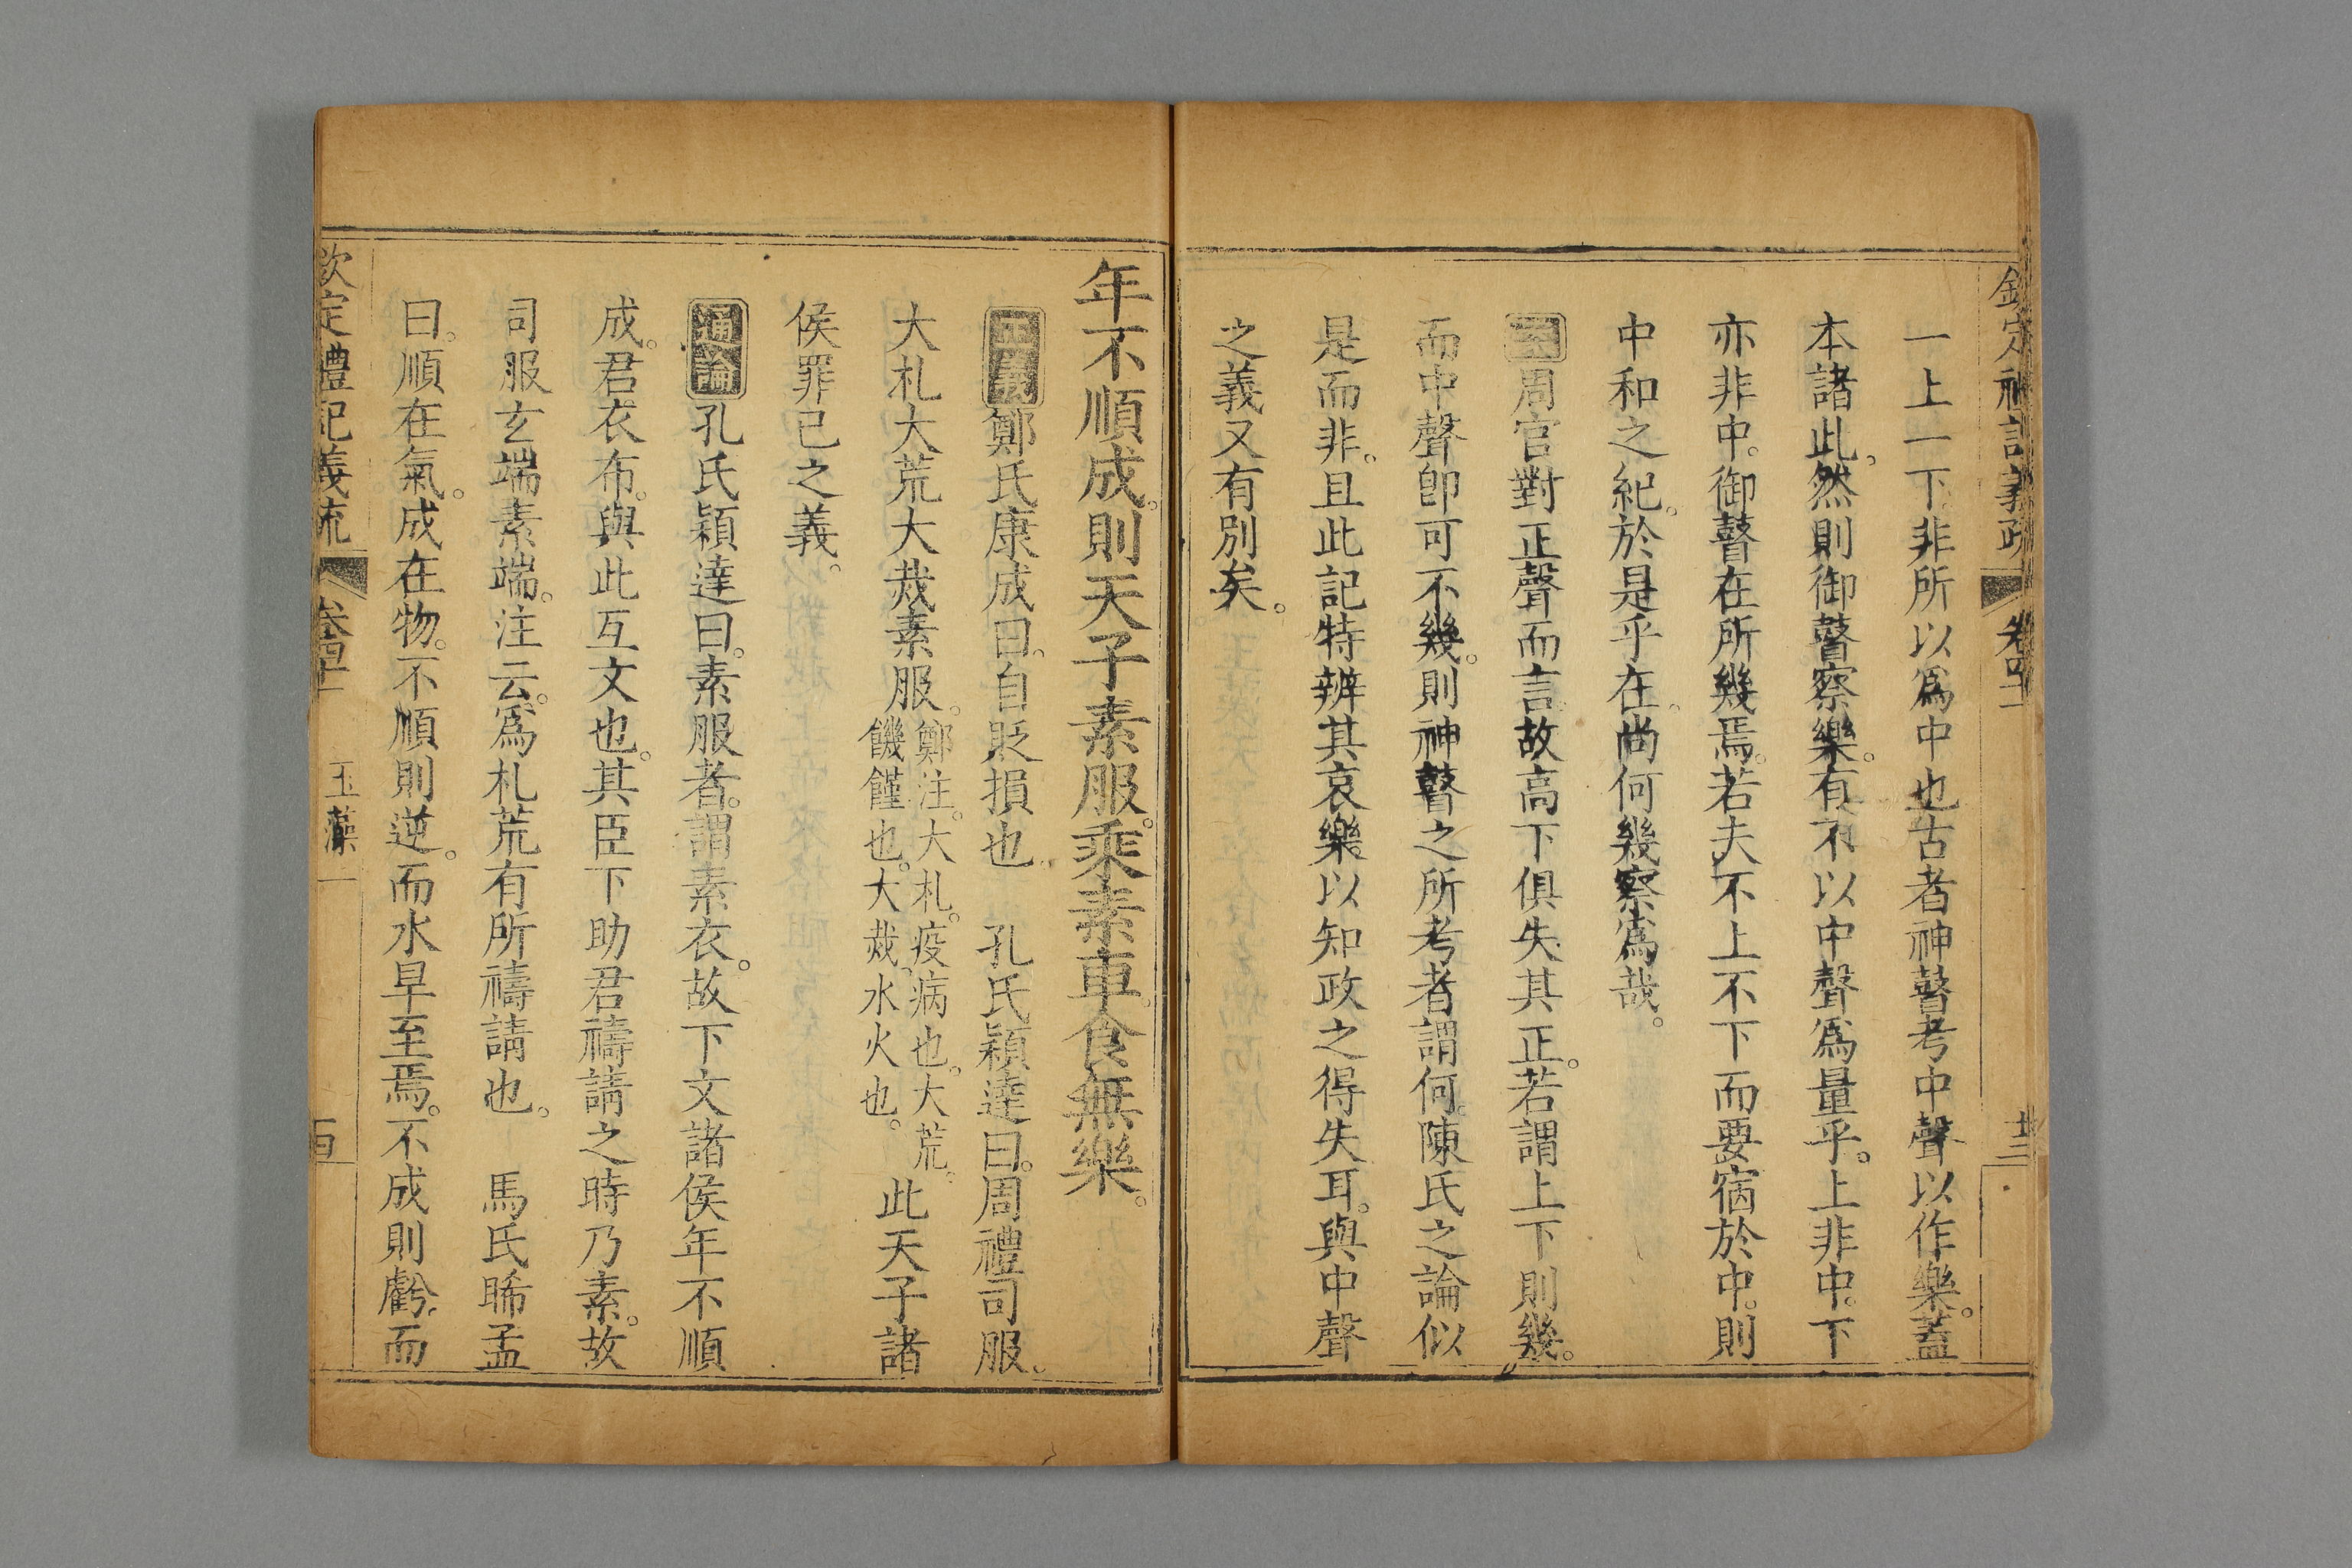 欽定禮記義疏 卷四十一
一上一下。非所以爲中也古者神瞽考中聲以作樂。蓋
本諸此。然則御瞽察樂。有不以中聲爲量乎。上非中。下
亦非中。御瞽在所幾焉。若夫不上不下而要宿於中。則
中和之紀。於是乎在。尚何幾察爲哉。
案周官對正聲而言。故高下俱失其正。若謂上下則幾。
而中聲卽可不幾。則神瞽之所考者謂何。陳氏之論似
是而非。且此記特辨其哀樂以知政之得失耳。與中聲
之義又有別矣。
年不順成。則天子素服。乘素車。食無樂。
正義鄭氏康成曰。自貶損也 孔氏穎達曰。周禮司服。
大札大荒大烖素服。鄭注。大札。疫病也。大荒。饑饉也。大烖。水火也。 此天子諸
侯罪己之義。
通論孔氏穎達曰。素服者。謂素衣。故下文諸侯年不順
成。君衣布。與此互文也。其臣下助君禱請之時乃素。故
司服玄端素端。注云。爲札荒有所禱請也。 馬氏晞孟
曰。順在氣。成在物。不順則逆。而水旱至焉。不成則虧。而
欽定禮記義疏 卷四十一 玉藻一